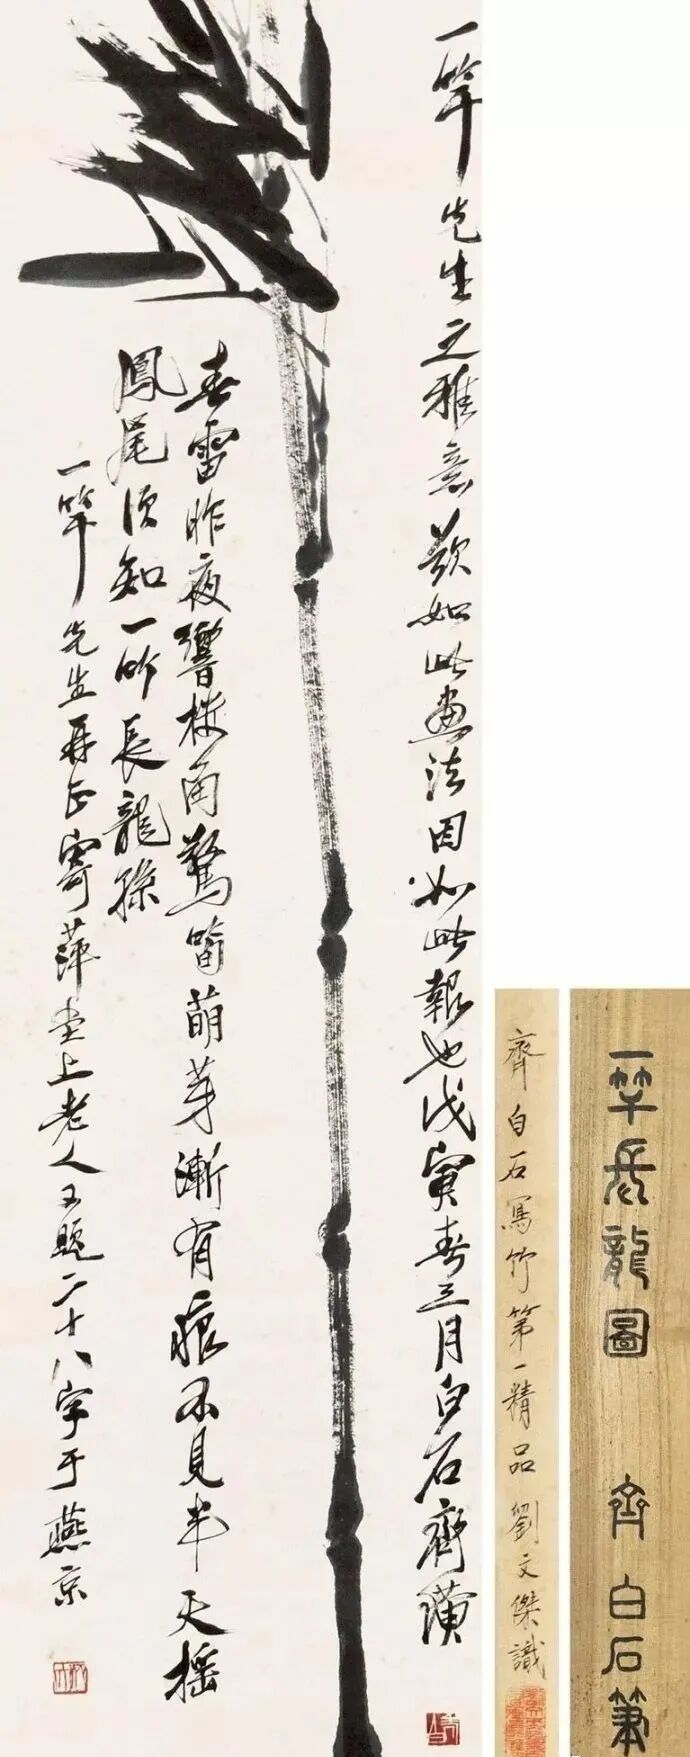 一竿先生之雅意欲如此画法因如此报也戊寅春三月白石齊璜
春雷昨夜響樓角驚笛萌芽漸有痕不見半天搖
鳳尾須知一昨長龍孫
一竿先生再正寄萍堂上老人又題二十八字于燕京
齊白石寫竹第一精品 劉文傑識
一竿長龍圖 齊白石筆